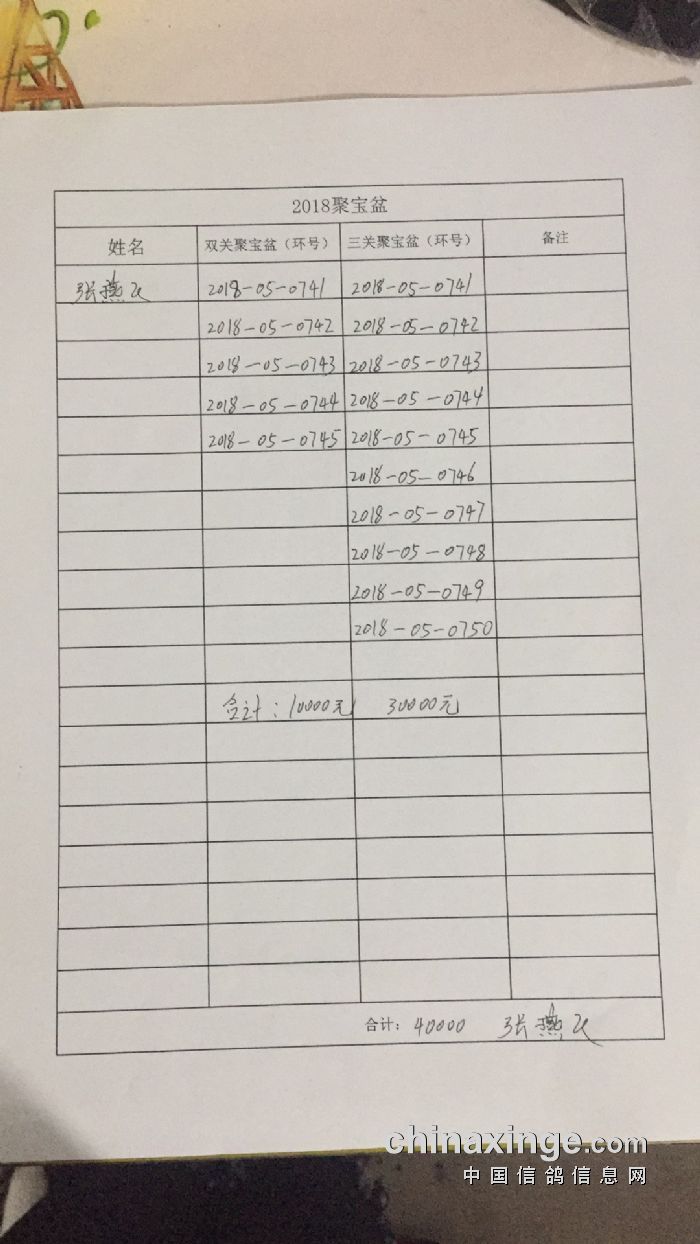 2018聚宝盆
姓名 双关聚宝盆（环号） 三关聚宝盆（环号） 备注
张燕飞 2018-05-0741 2018-05-0741
2018-05-0742 2018-05-0742
2018-05-0743 2018-05-0743
2018-05-0744 2018-05-0744
2018-05-0745 2018-05-0745
2018-05-0746
2018-05-0747
2018-05-0748
2018-05-0749
2018-05-0750
合计：10000元 30000元
合计：40000 张燕飞
chinaxinge.com
中国信鸽信息网